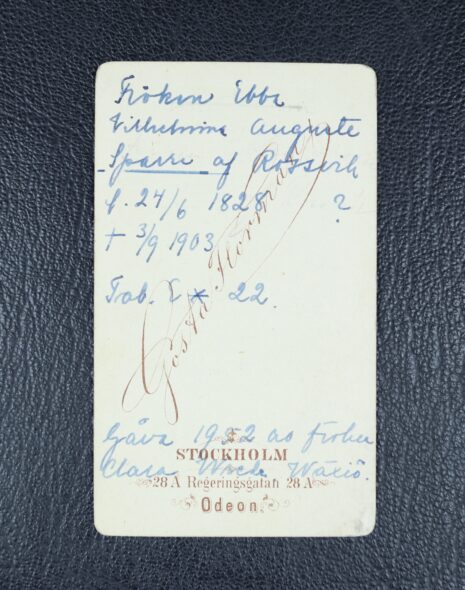 Fröken Ebba
Vilhelmina Auguste
Sparre af Rossvik
f. 24/6 1828 ?
+ 3/9 1903
Tab. 22
Gösta Florman
Gåva 1952 av fröken
Clara
STOCKHOLM
28 A Regeringsgatan 28 A
Odeon.